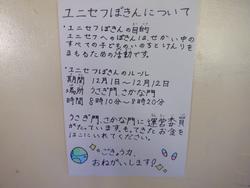 ユニセフぼきんについて
・ユニセフぼきんの目的
ユニセフへのぼきんは、せかい中の
すべての子どものいのちとけんりを
まもるための活動です。
・ユニセフぼきんのルール
期間 12月1日〜12月12日
場所 うさぎ門、さかな門
時間 8時10分〜8時20分
うさぎ門、さかな門に運営委員
がたっています。もってきたお金を
はこにいれてください。
ごきょう力、
おねがいします!